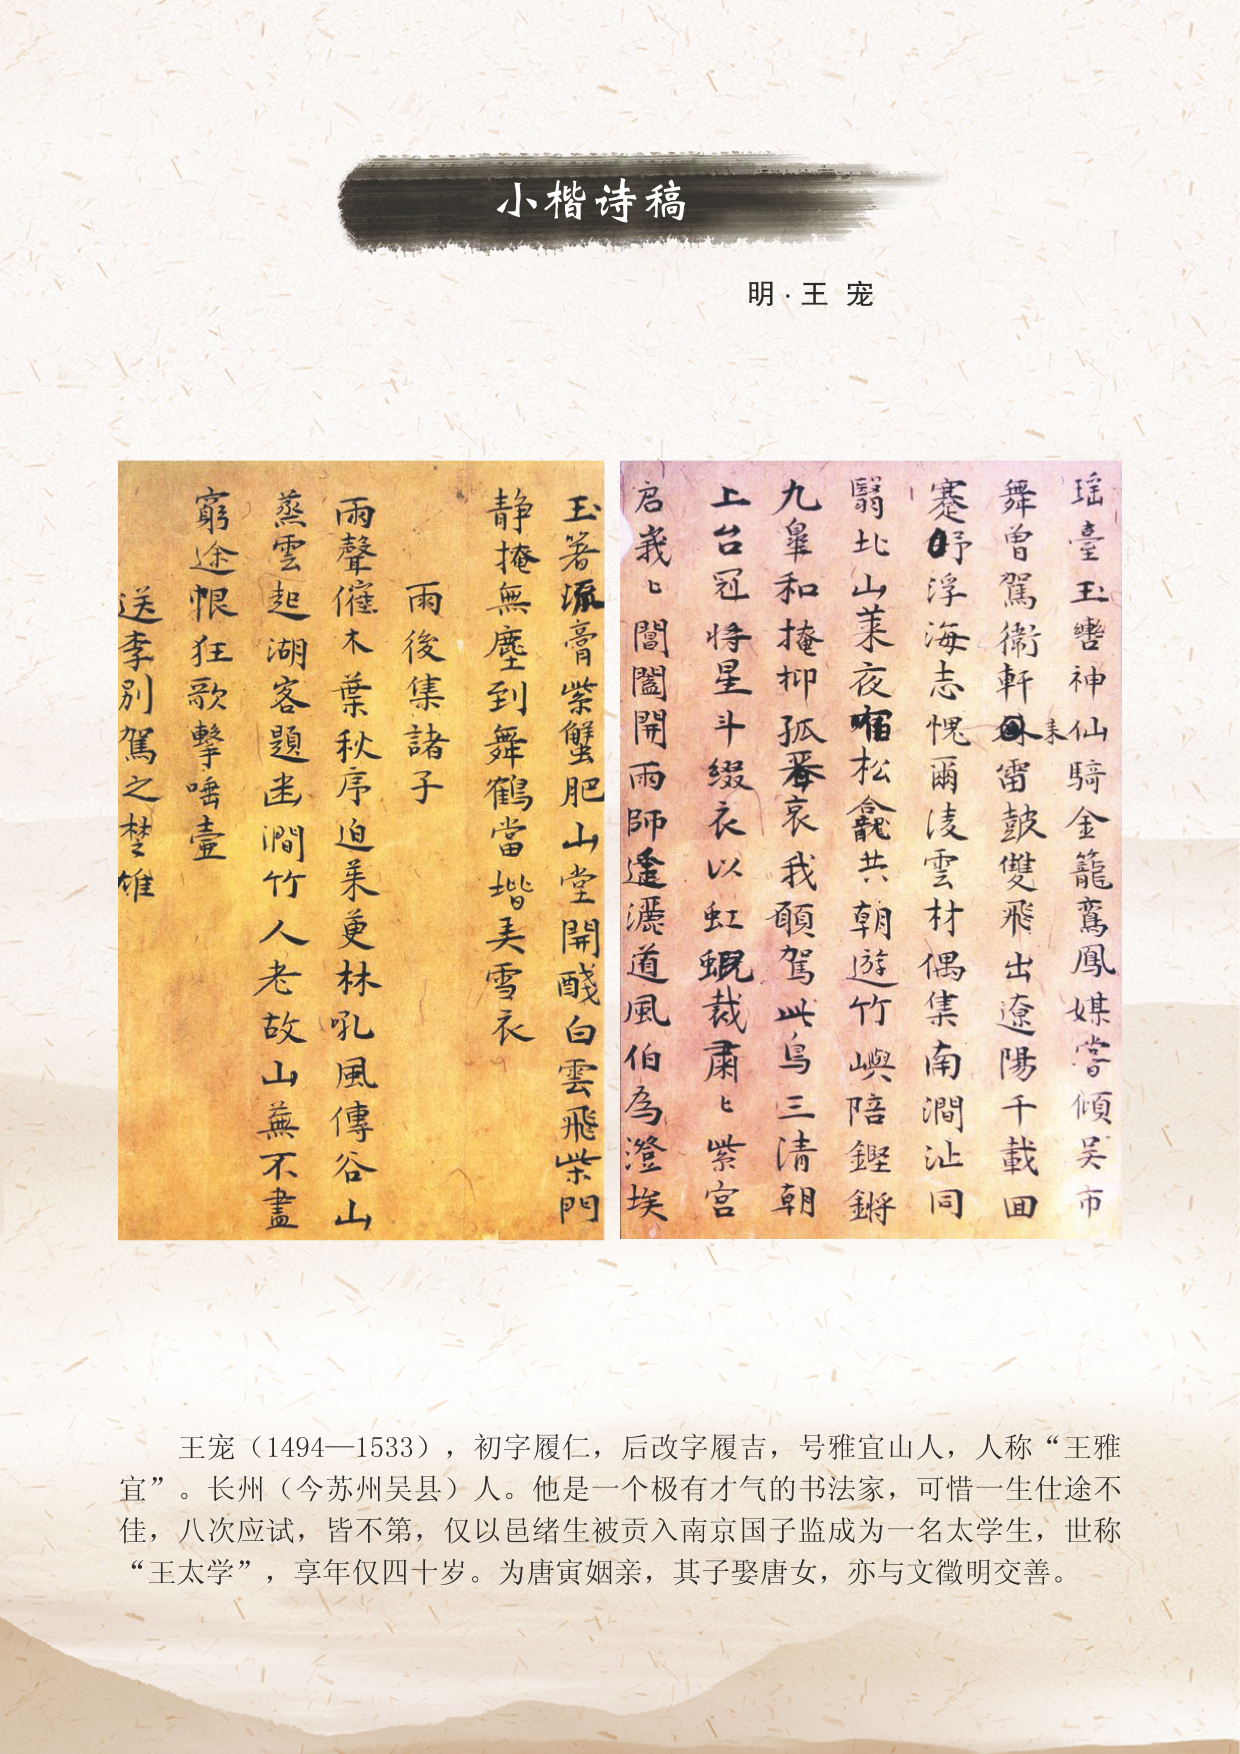 小楷诗稿
明·王 宠
瑶臺玉轡神仙騎金籠鸞鳳媒嘗傾吴市
舞曾駕衞軒来雷鼓雙飛出遼陽千載回
蹇浮海志愧爾凌雲材偶集南澗沚同
翳北山萊夜宿松龕共朝遊竹嶼陪鏗鏘
九皋和掩抑孤哀我願駕此鳥三清朝
上台冠将星斗綴衣以虹蜺裁肅〻紫宮
启峩〻閶闔開雨師遙灑道風伯為澄埃
玉箸流膏紫蟹肥山堂開醆白雲飛柴門
静掩無塵到舞鶴當堦美雪衣
雨後集諸子
雨聲催木葉秋序迫茱萸林吼風傳谷山
蒸雲起湖客題迷澗竹人老故山蕪不盡
窮途恨狂歌擊唾壺
送李別駕之楚雄
王宠（1494—1533），初字履仁，后改字履吉，号雅宜山人，人称“王雅
宜”。长州（今苏州吴县）人。他是一个极有才气的书法家，可惜一生仕途不
佳，八次应试，皆不第，仅以邑绪生被贡入南京国子监成为一名太学生，世称
“王太学”，享年仅四十岁。为唐寅姻亲，其子娶唐女，亦与文徵明交善。